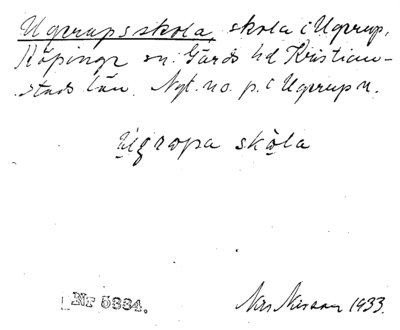 Ugerupsskola, skola i Ugerup,
Köpinge sn. Gärds hd Kristian-
stads län. Nyt. no. p. i Ugerup n.
Ugrupa skola
Nr 5334.
1933.